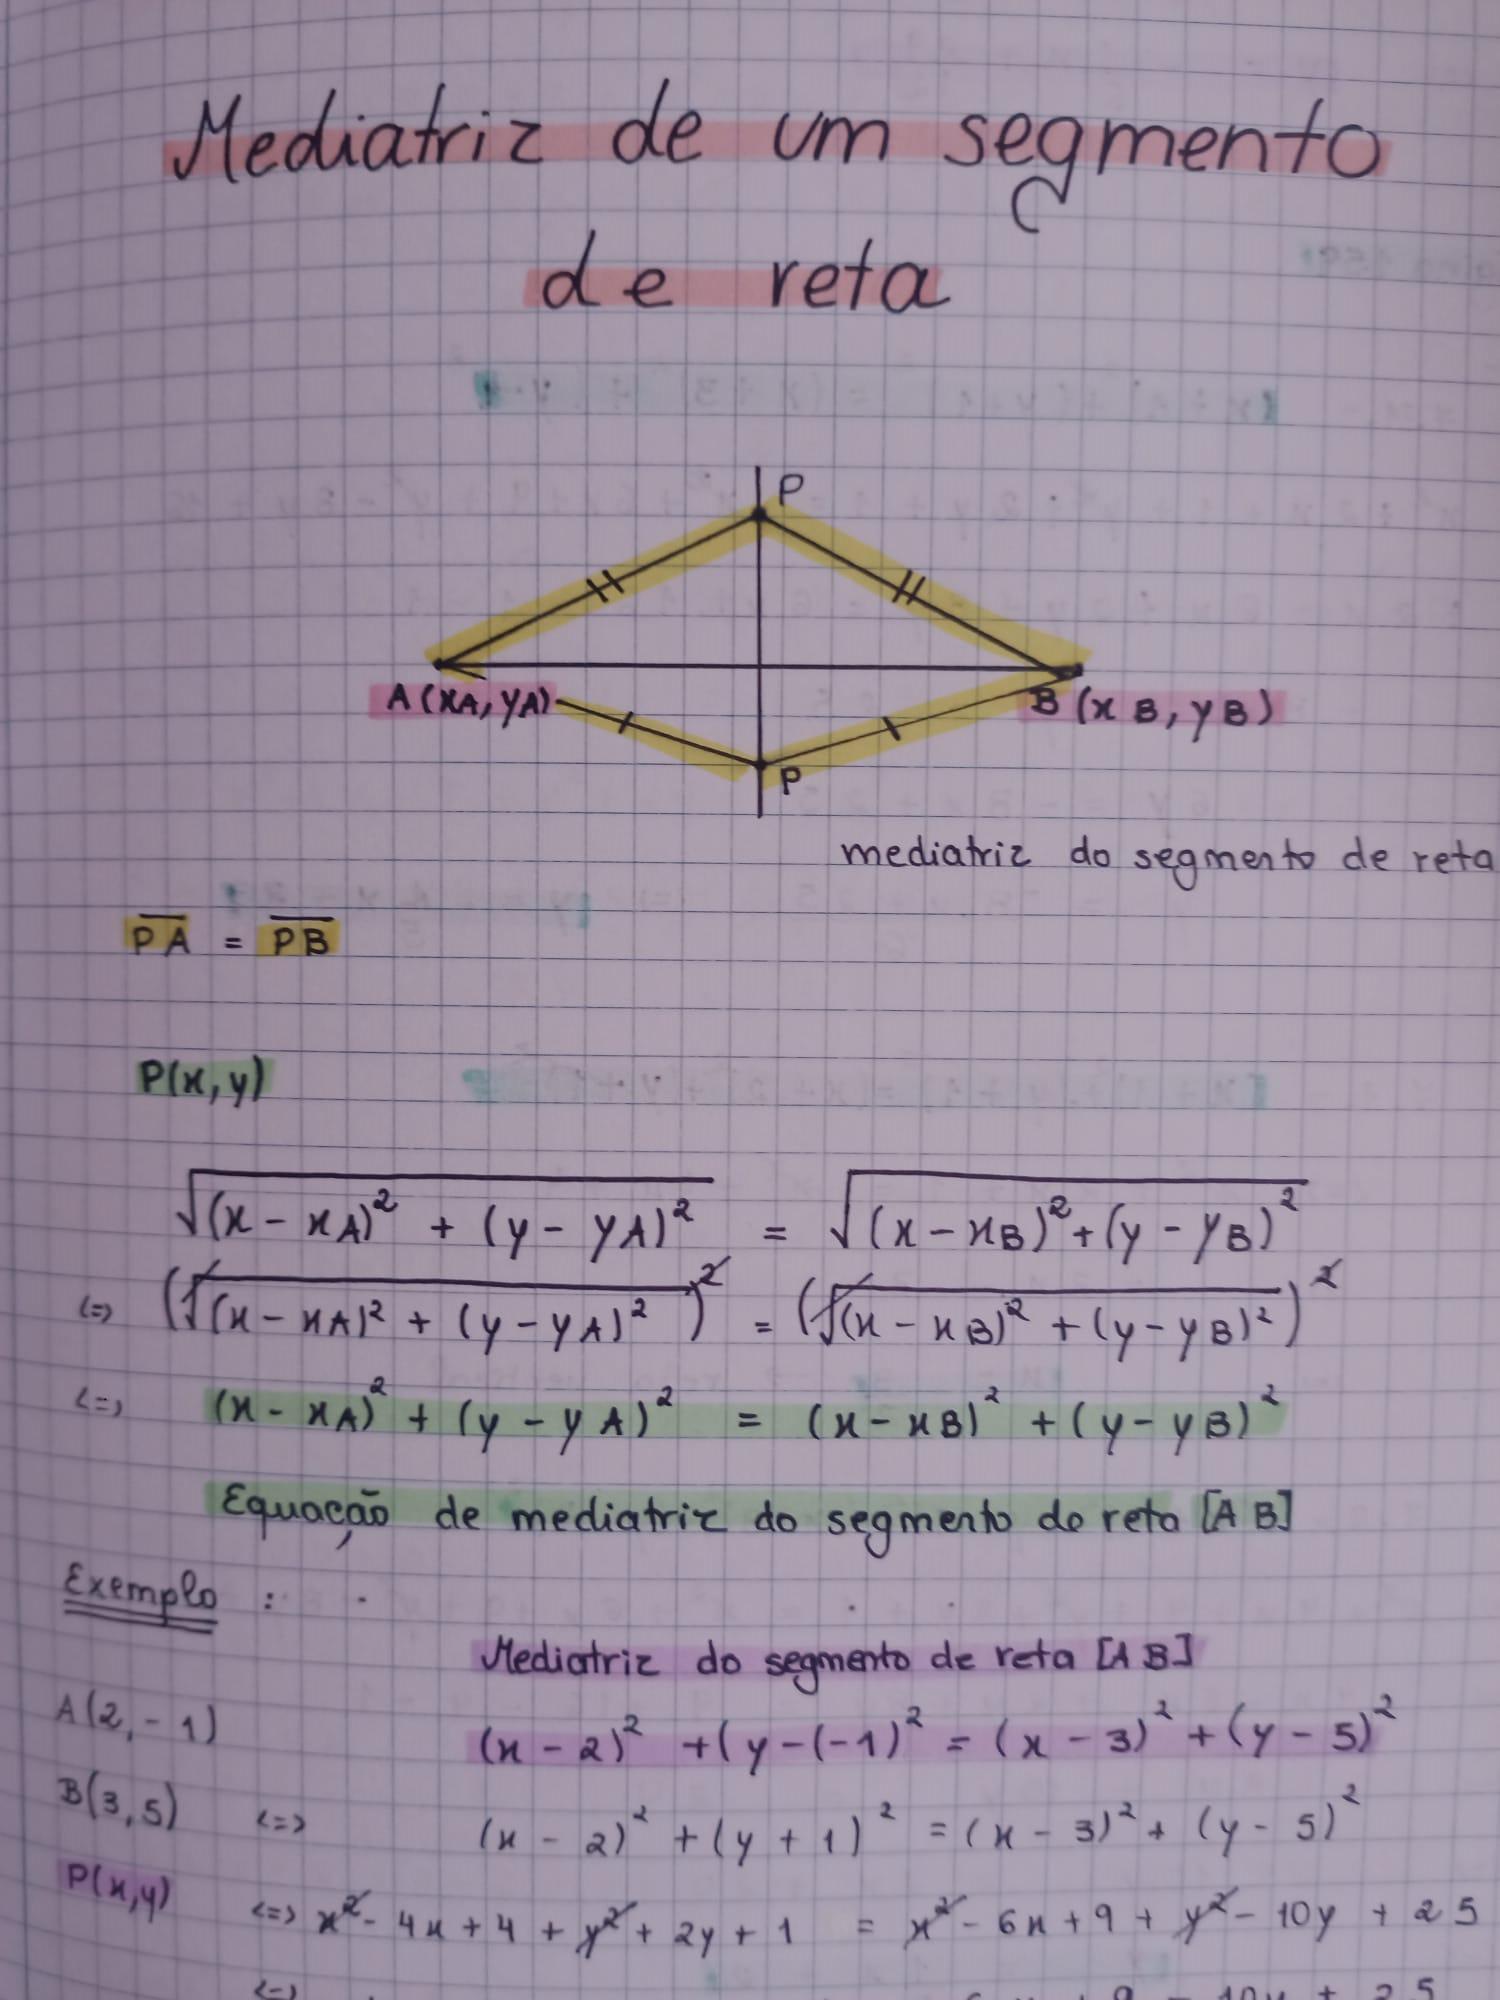 Mediatriz de um segmento
de reta
P
A(xA, yA)
B (xB, yB)
P
mediatriz do segmento de reta
PA = PB
P(x,y)
√(x - xA)² + (y - yA)² = √(x - xB)² + (y - yB)²
<=> (√(x - xA)² + (y - yA)²)² = (√(x - xB)² + (y - yB)²)²
<=> (x - xA)² + (y - yA)² = (x - xB)² + (y - yB)²
Equação de mediatriz do segmento de reta [AB]
Exemplo :
Mediatriz do segmento de reta [AB]
A(2,-1)
(x - 2)² + (y - (-1)² = (x - 3)² + (y - 5)²
B(3,5)
<=> (x - 2)² + (y + 1)² = (x - 3)² + (y - 5)²
P(x,y)
<=> x² - 4x + 4 + y² + 2y + 1 = x² - 6x + 9 + y² - 10y + 25